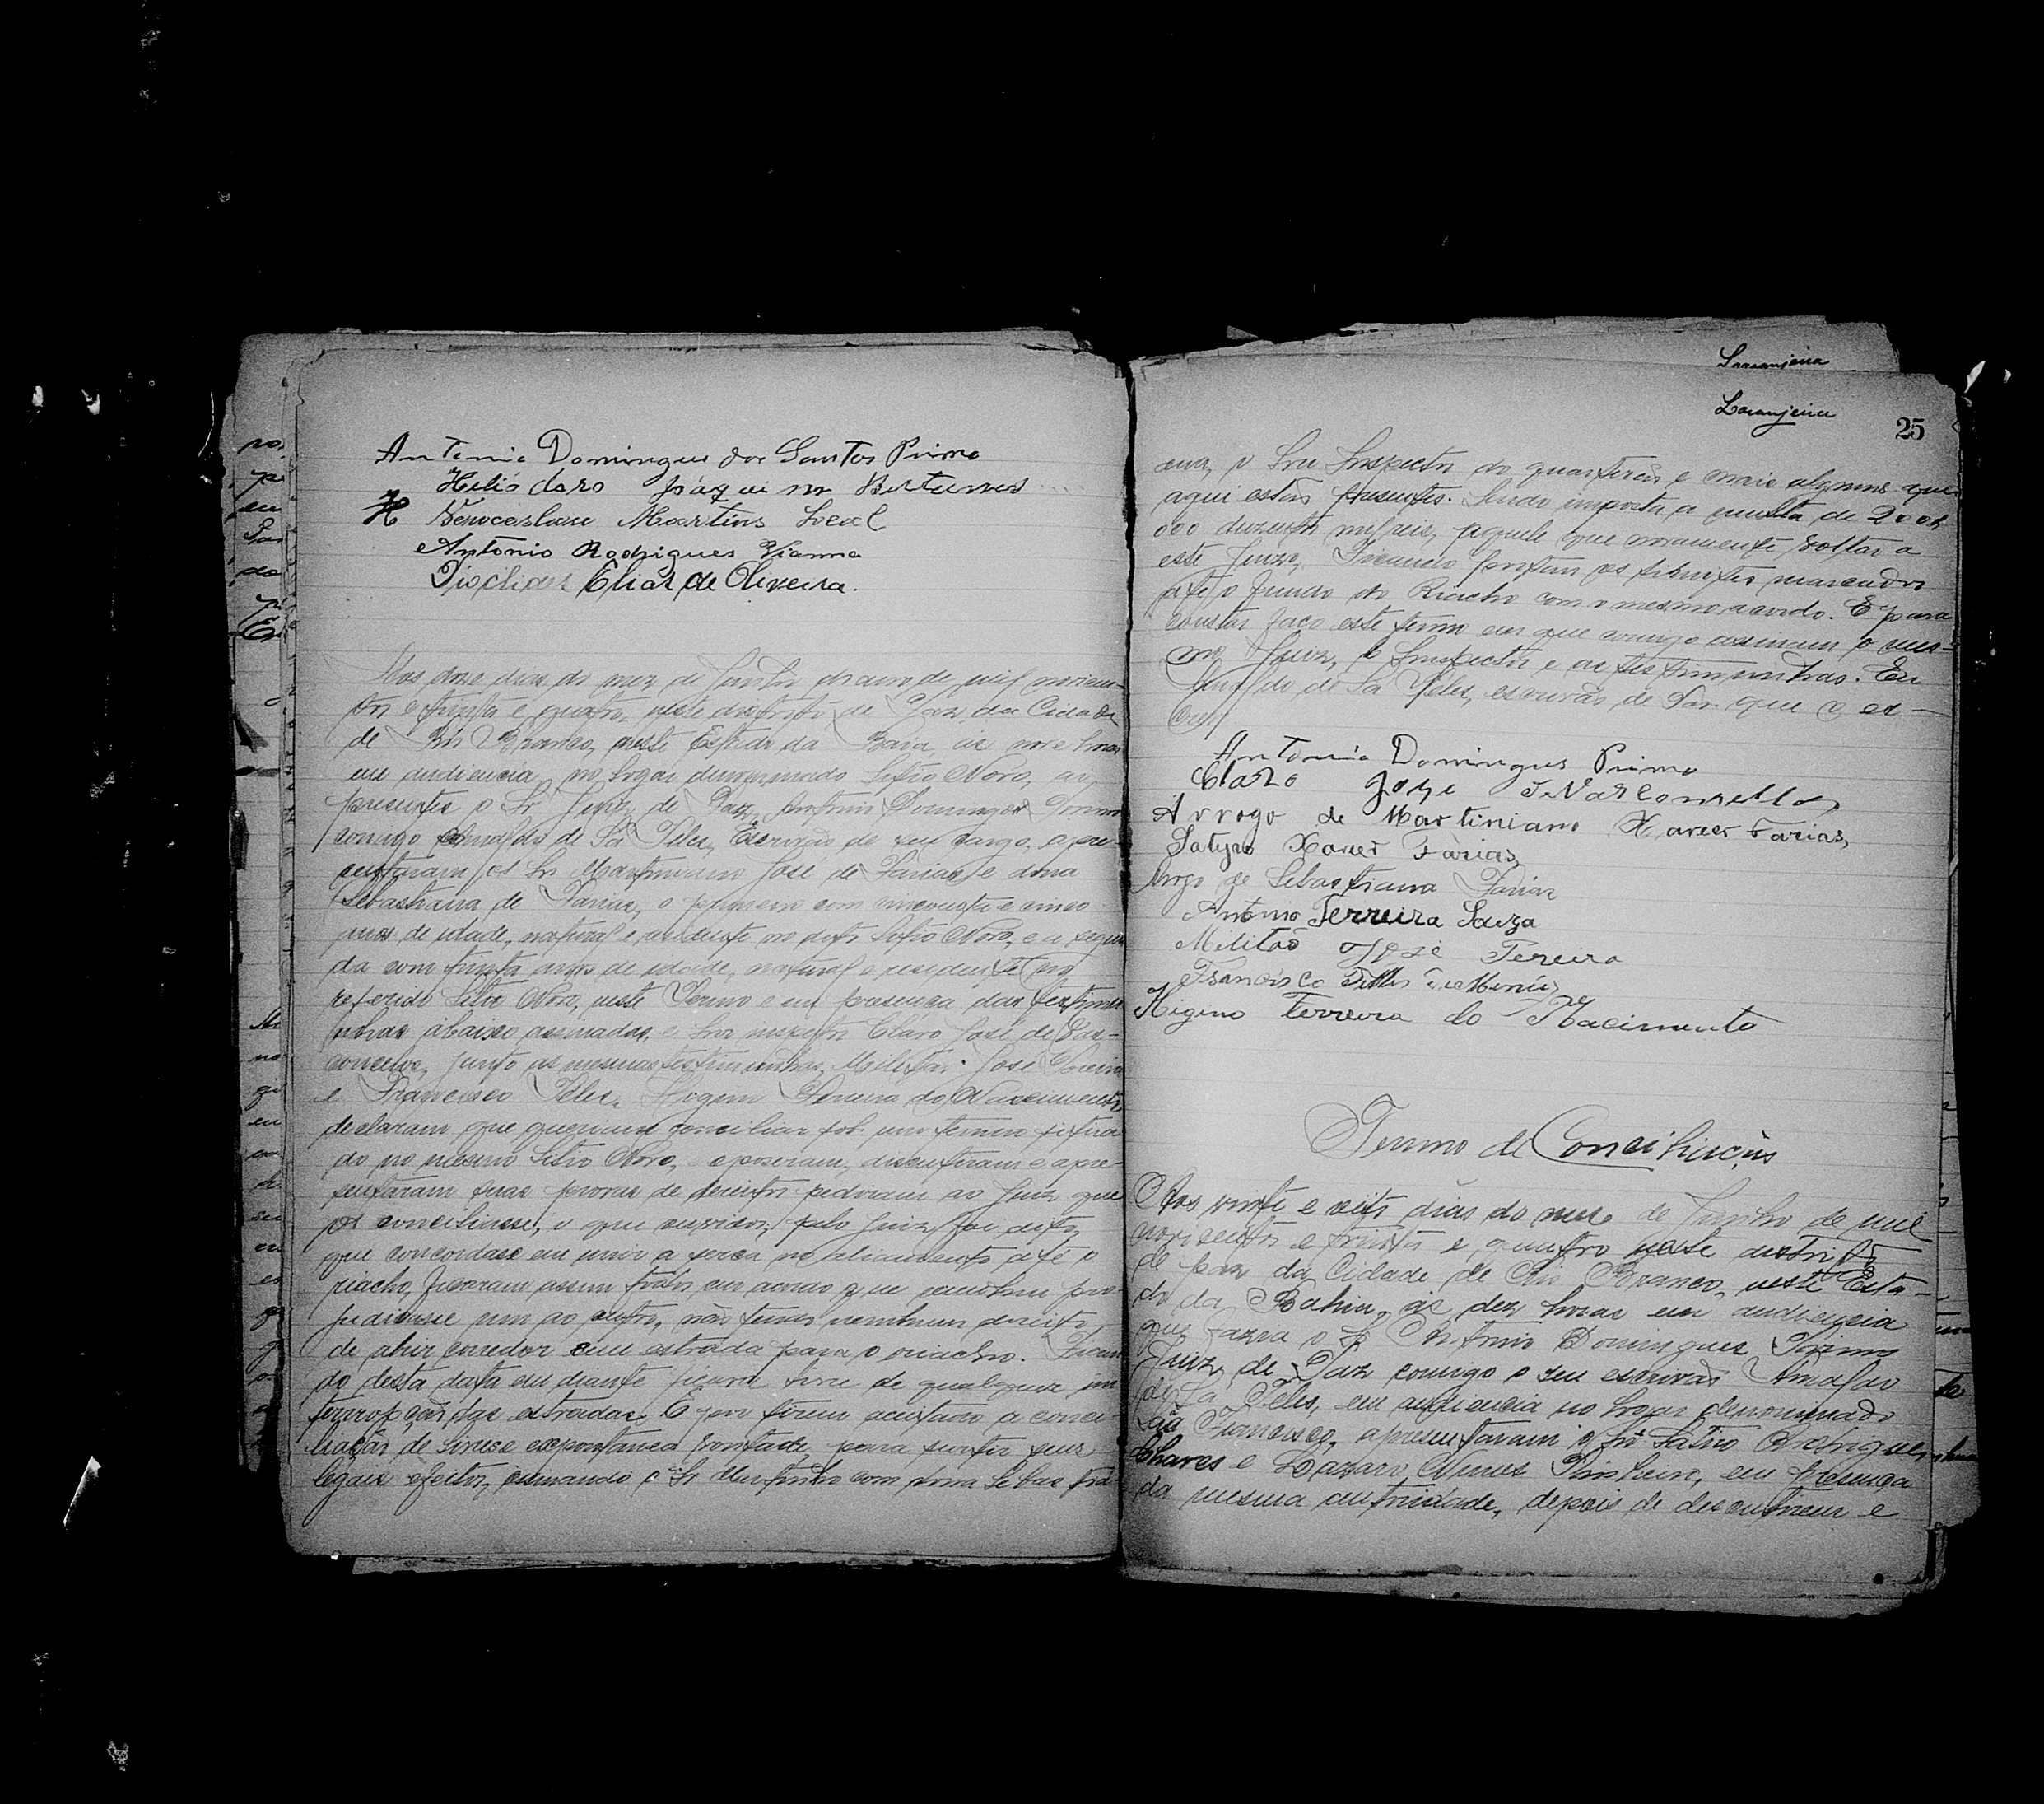 Antonio Domingues dos Santos Primo
Heliodoro Joaquim
Martins Leal
Antonio Rodrigues Vianna
Elias de Oliveira.
Aos doze dias do mez de Junho do anno de mil novicen-
tos e trinta e quatro, neste districto de Paz da Cidade
de Rio Branco, neste Estado da Baia, as nove horas
em audiencia, no logar denominado Sitio Novo, ai
presentes o Sr Juiz de Paz, Antonio Domingos Primo
comigo de Sá Teles, Escrivão de seu cargo, apre-
sentaram os Srs Martiniano José de Farias e dona
Sebastiana de Farias, o primeiro com cincoenta e cinco
anos de idade, natural e residente no dito Sitio Novo, e a segun-
da com trinta anos de idade, natural e residente no
referido Sitio Novo, neste Termo e em presença das testimu-
nhas abaixo assinadas, e Snr inspector Claro José de Vas-
concelos, junto as mesmas testimunhas, Militão José
e Francisco Teles, Ferreira do Nascimento
declaram que queriam conciliar sob um terreno situa-
do no mesmo Sitio Novo, discutiram e apre-
sentaram suas provas de direitos pediram ao Juiz que
os conciliasse, o que ouvidos, pelo Juiz foi dito,
que concordase em unir a serca no aliamento até o
riacho, ficaram assim todos em acordo que nenhum pre-
judicasse um ao outro, não tendo nenhum direito
de abrir corredor estrada para o riacho. Fican-
do desta data em diante ficará livre de qualquer in-
terrupção das estradas. E por terem aceitado a conci-
liação de livre e expontanea vontade para surtir seus
legais efeitos, o Sr com dona Sebastia-
Laranjeira
Laranjeira
25
ana, o Snr Inspector do quarteirão e mais alguns que
aqui estão presentes. Sendo imposta a multa de 200$
000 duzentos mil reis, aquele que novamente voltar a
este Juizo, Ficando portão os limites marcados
até o fundo do Riacho com o mesmo acordo. E para
constar faço este termo em que comigo assinam o mes-
mo Juiz, o Inspector e as testimunhas. Eu
de Sá Teles, escrivão de Paz que o es-
crevi.
Antonio Domingues Primo
Claro Joze de Vasconsellos
Arrogo de Martiniano Xavier Farias,
Satyro Xavier Farias
Arogo de Sebastiana Farias
Antonio Ferreira Souza
Militão José Pereira
Francisco Telles de Menis
Higino Ferreira do Nacimento
Termo de Conciliação
Aos vinte e oito dias do mes de Junho de mil
novicentos e trinta e quatro neste distrito
de paz da Cidade de Rio Branco, neste Esta-
do da Bahia, as dez horas em audiencia
que fazia o Sr Antonio Domingues Primo
Juiz de Paz comigo o seu escrivão
de Sá Teles, em audiencia no logar denominado
São Francisco, apresentaram o Snr Satiro Rodrigues
Chaves e Lazaro Nunes Pinheiro, em presença
da mesma autoridade, depois de descutirem e